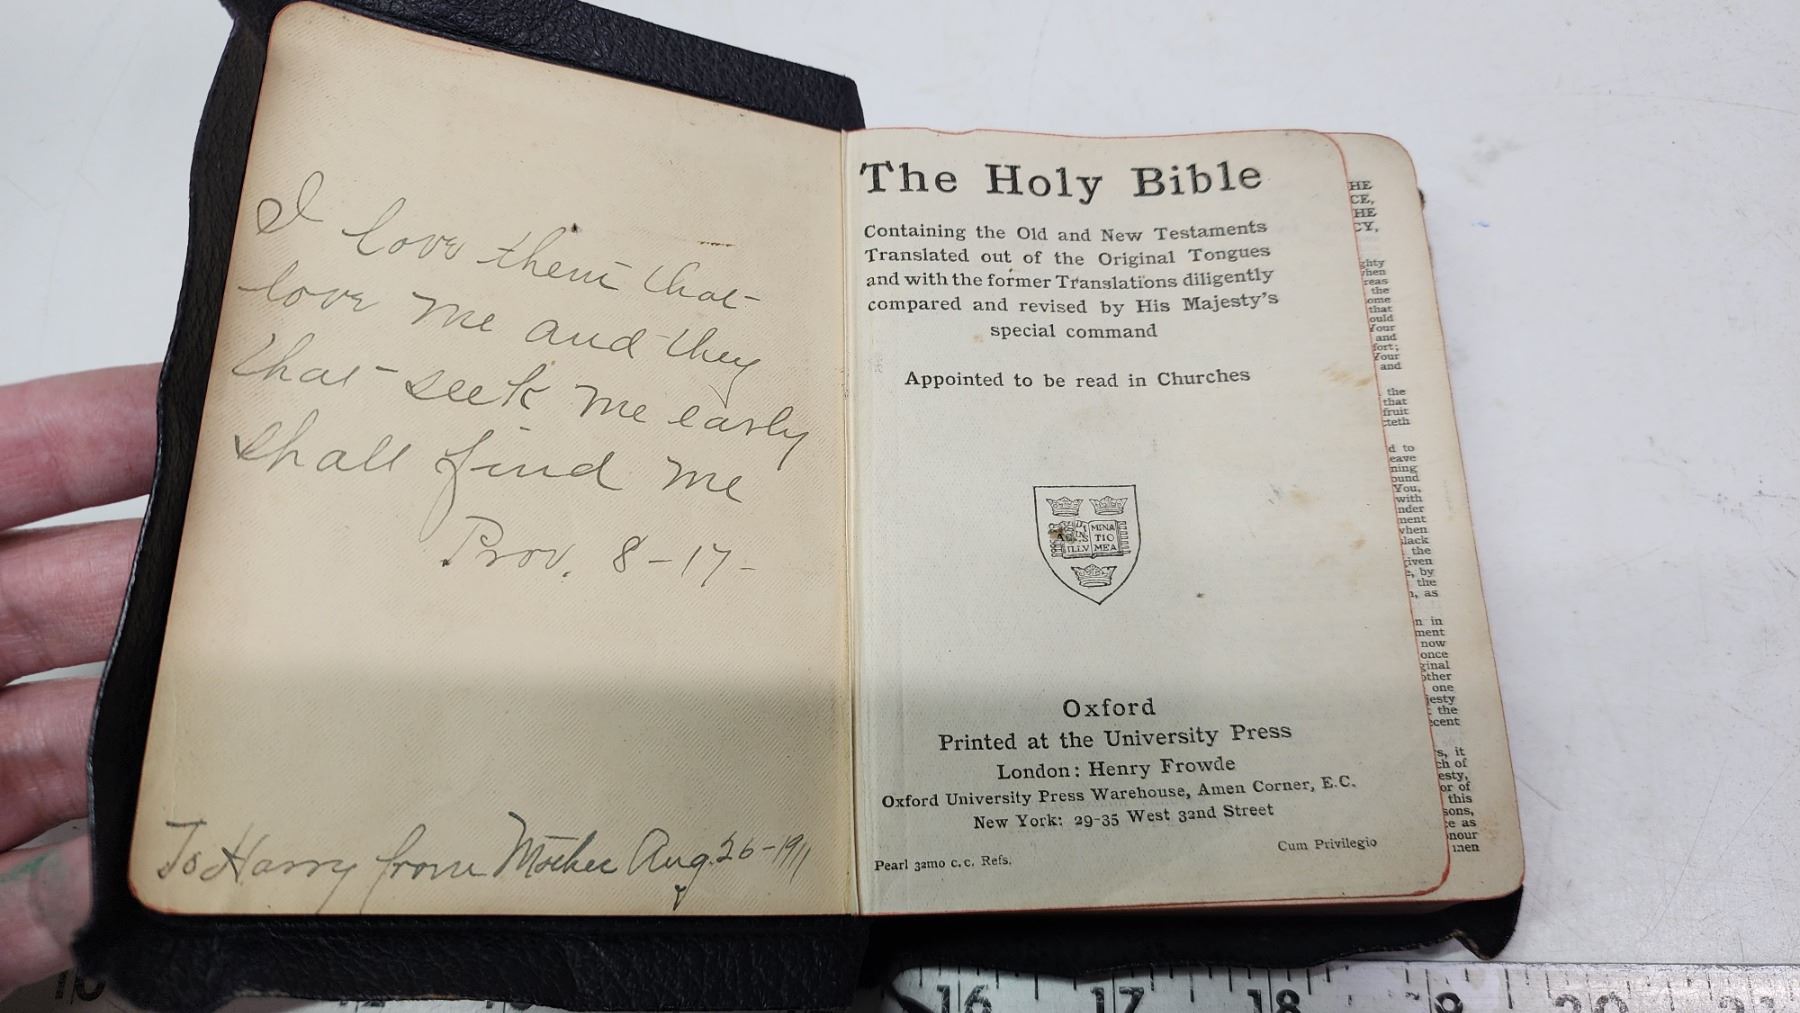 I love them that
love me and they
that seek me early
shall find me
Prov. 8-17-
To Harry from Mother Aug. 26-1911
The Holy Bible
Containing the Old and New Testaments
Translated out of the Original Tongues
and with the former Translations diligently
compared and revised by His Majesty's
special command
Appointed to be read in Churches
MINA
TIO
ILLV MEA
Oxford
Printed at the University Press
London: Henry Frowde
Oxford University Press Warehouse, Amen Corner, E.C.
New York: 29-35 West 32nd Street
Cum Privilegio
Pearl 32mo c.c. Refs.
HE
CE,
HE
CY,
the
that
fruit
and
the
one
this
16 17 18